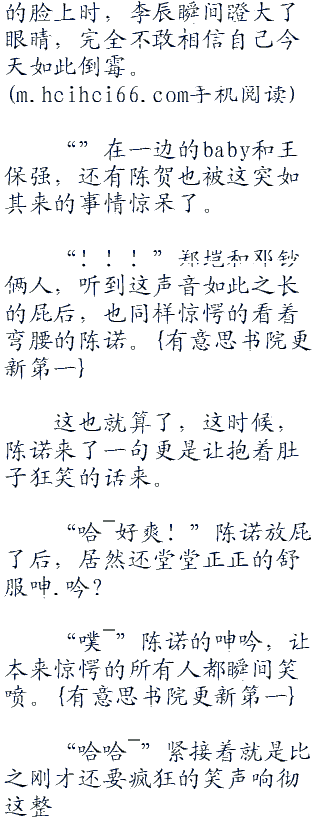 的脸上时，李辰瞬间瞪大了
眼睛，完全不敢相信自己今
天如此倒霉。
(m.hcihci66.com手机阅读)
“”在一边的baby和王
保强，还有陈贺也被这突如
其来的事情惊呆了。
“！！！”郑垲和邓钞
俩人，听到这声音如此之长
的屁后，也同样惊愕的看着
弯腰的陈诺。{有意思书院更
新第一}
这也就算了，这时候，
陈诺来了一句更是让抱着肚
子狂笑的话来。
“哈¯好爽！”陈诺放屁
了后，居然还堂堂正正的舒
服呻.吟？
“噗¯”陈诺的呻吟，让
本来惊愕的所有人都瞬间笑
喷。{有意思书院更新第一}
“哈哈¯”紧接着就是比
之刚才还要疯狂的笑声响彻
这整